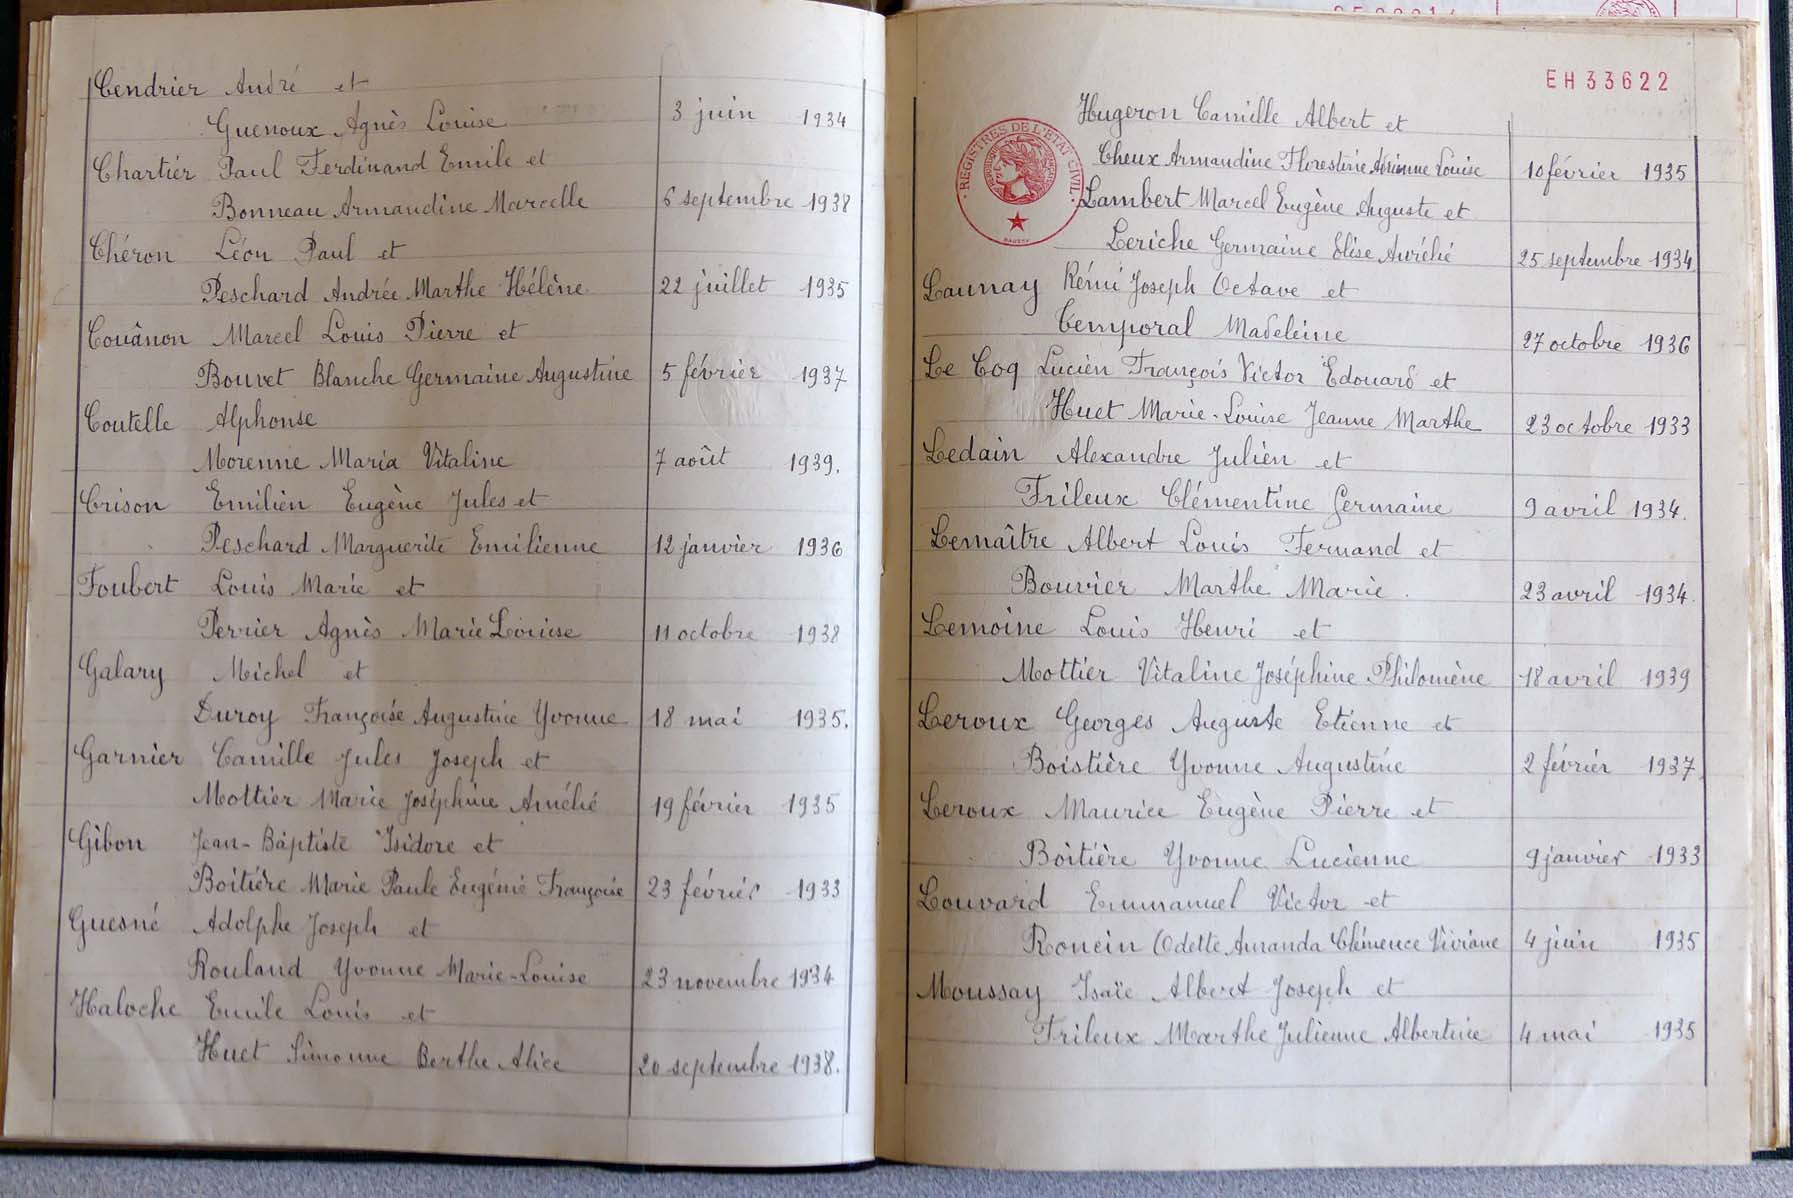 Cendrier André et
Guenoux Agnès Louise 3 juin 1934
Chartier Paul Ferdinand Emile et
Bonneau Armandine Marcelle 6 septembre 1938
Chéron Léon Paul et
Peschard Andrée Marthe Hélène 22 juillet 1935
Couânon Marcel Louis Pierre et
Bouvet Blanche Germaine Augustine 5 février 1937
Coutelle Alphonse
Morenne Maria Vitaline 7 août 1939.
Crison Emilien Eugène Jules et
Peschard Marguerite Emilienne 12 janvier 1936
Foubert Louis Marie et
Perrier Agnès Marie Louise 11 octobre 1938
Galary Michel et
Duroy Françoise Augustine Yvonne 18 mai 1935.
Garnier Camille Jules Joseph et
Mottier Marie Joséphine Amélie 19 février 1935
Gibon Jean-Baptiste Isidore et
Boitière Marie Paule Eugénie Françoise 23 février 1933
Guesné Adolphe Joseph et
Rouland Yvonne Marie-Louise 23 novembre 1934
Haloche Emile Louis et
Huet Simonne Berthe Alice 20 septembre 1938.
EH33622
REGISTRES DE L'ETAT CIVIL
Hugeron Camille Albert et
Cheux Armandine Florestine Louise 10 février 1935
Lambert Marcel Eugène Auguste et
Leriche Germaine Elise Aurélie 25 septembre 1934
Launay Rémi Joseph Octave et
Temporal Madeleine 27 octobre 1936
Le Coq Lucien François Victor Edouard et
Huet Marie-Louise Jeanne Marthe 23 octobre 1933
Ledain Alexandre Julien et
Frileux Clémentine Germaine 9 avril 1934.
Lemaître Albert Louis Fernand et
Bouvier Marthe Marie. 23 avril 1934.
Lemoine Louis Henri et
Mottier Vitaline Joséphine Philomène 18 avril 1939
Leroux Georges Auguste Etienne et
Boistière Yvonne Augustine 2 février 1937
Leroux Maurice Eugène Pierre et
Boitière Yvonne Lucienne 9 janvier 1933
Louvard Emmanuel Victor et
Roncin Odette Amanda Clémence Viviane 4 juin 1935
Moussay Isaïe Albert Joseph et
Frileux Marthe Julienne Albertine 4 mai 1935